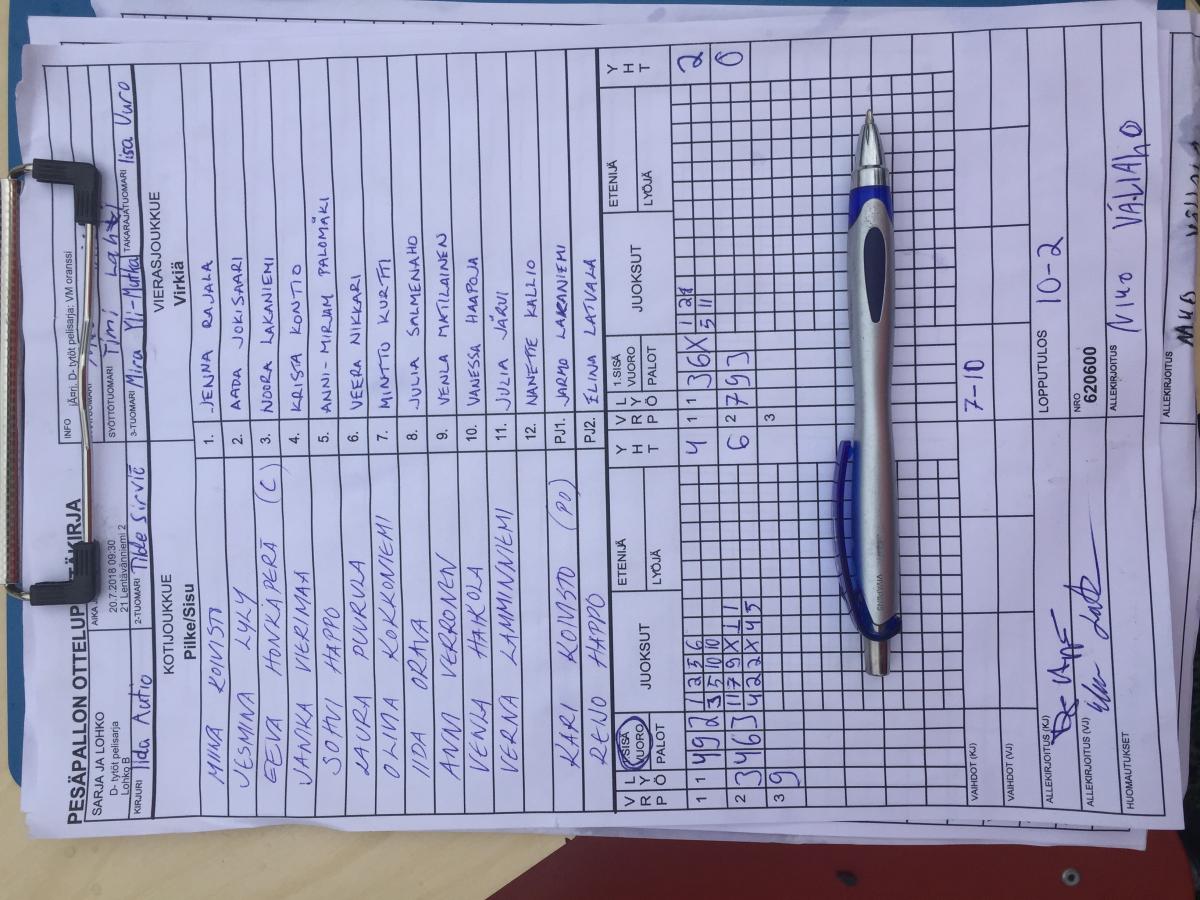 PESÄPALLON OTTELUP TÄKIRJA
SARJA JA LOHKO
D- tytöt pelisarja
Lohko B
AIKA
20.7.2018 09:30
21 Lentävänniemi 2
INFO
D- tytöt pelisarja; VM oranssi
SYÖTTÖTUOMARI Timi Lahti
KIRJURI Iida Autio
2-TUOMARI Tilde Sirviö
3-TUOMARI Mira Yli-Mutka
TAKARAJATUOMARI Iisa Vuro
KOTIJOUKKUE
Pilke/Sisu
VIERASJOUKKUE
Virkiä
MIINA KOIVISTO 1. JENNA RAJALA
JESMINA LYLY 2. AADA JOKISAARI
EEVA HONKAPERÄ (C) 3. NOORA LAKANIEMI
JANIKA VIERIMAA 4. KRISTA KONTIO
SOHVI HAPPO 5. ANNI-MIRJAM PALOMÄKI
LAURA PUURULA 6. VEERA NIKKARI
OLIVIA KOKKONIEMI 7. MINTTU KURTTI
IIDA ORAVA 8. JULIA SALMENAHO
ANNI VERRONEN 9. VENLA MATILAINEN
VENLA HAIKOLA 10. VANESSA HAAPOJA
VERNA LAMMINNIEMI 11. JULIA JÄRVI
12. NANETTE KALLIO
KARI KOIVISTO (PO) PJ1. JARMO LAKANIEMI
RENO HAPPO PJ2. ELINA LATVALA
V R L Y P Ö 1.SISÄ VUORO PALOT JUOKSUT ETENIJÄ LYÖJÄ Y H T V R L Y P Ö 1.SISÄ VUORO PALOT JUOKSUT ETENIJÄ LYÖJÄ Y H T
1 1 4 9 2 1 2 5 6 4 1 1 3 6 X 1 2 2
3 5 10 10 5 11
2 3 4 6 3 11 7 9 X 1 1 6 2 7 9 3 0
4 2 2 X 4 5
3 9 3
VAIHDOT (KJ) 7-10
VAIHDOT (VJ)
ALLEKIRJOITUS (KJ)
LOPPUTULOS 10-2
ALLEKIRJOITUS (VJ)
NRO
620600
HUOMAUTUKSET
ALLEKIRJOITUS Niko VÄLIAHO
ALLEKIRJOITUS